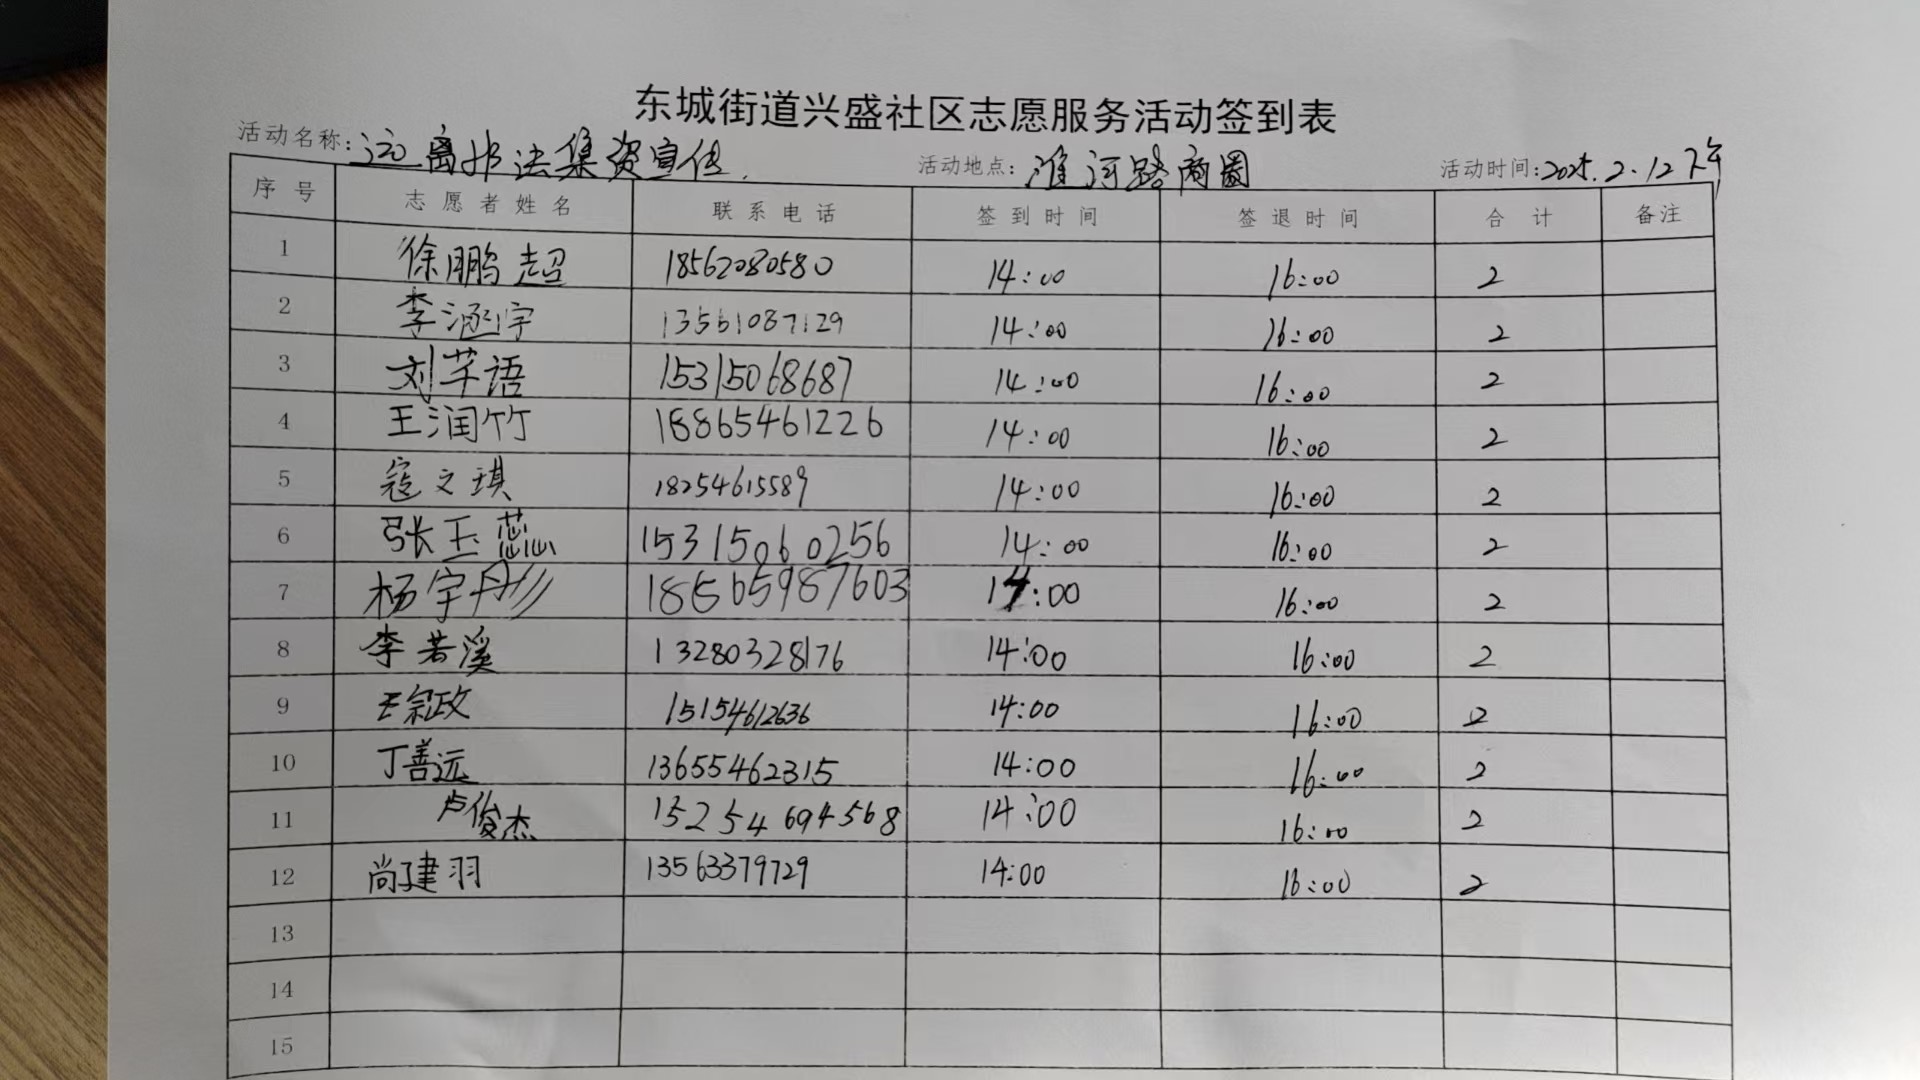 东城街道兴盛社区志愿服务活动签到表
活动名称:远离非法集资宣传. 活动地点:淮河路商圈 活动时间:2025.2.12下午
序号 志愿者姓名 联系电话 签到时间 签退时间 合计 备注
1 徐鹏超 18562080580 14:00 16:00 2
2 李涵宇 13561087129 14:00 16:00 2
3 刘芊语 15315068687 14:00 16:00 2
4 王润竹 18865461226 14:00 16:00 2
5 寇文琪 18254615589 14:00 16:00 2
6 张玉蕊 15315060256 14:00 16:00 2
7 杨宇彤 18565987603 14:00 16:00 2
8 李若溪 13280328176 14:00 16:00 2
9 王宗政 15154612636 14:00 16:00 2
10 丁善远 13655462315 14:00 16:00 2
11 卢俊杰 15254694568 14:00 16:00 2
12 尚建羽 13563379729 14:00 16:00 2
13
14
15